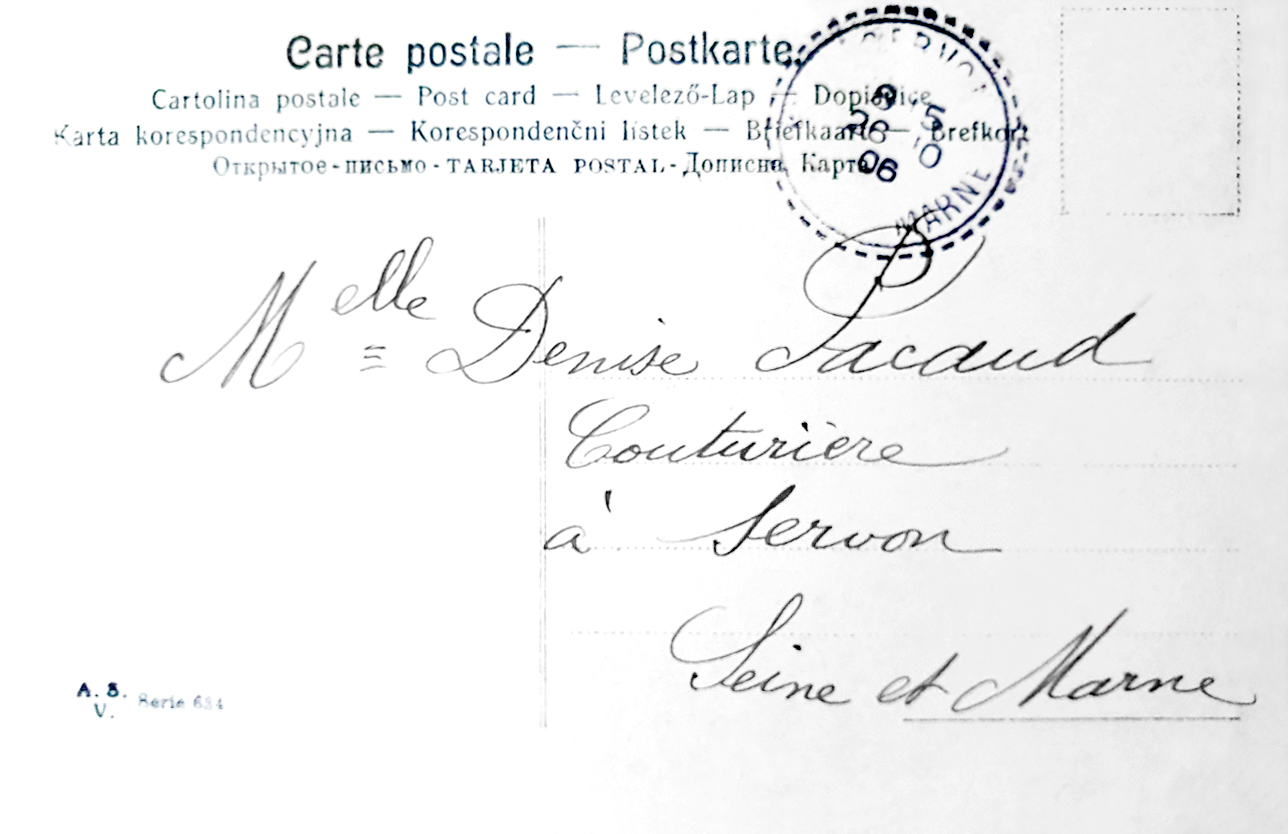 Carte postale — Postkarte
Cartolina postale — Post card — Levelező-Lap — Dopisnice
Karta korespondencyjna — Korespondenčni listek — Briefkaart — Brefkort
Открытое-письмо - TARJETA POSTAL - Дописна Карта
5
26 0
06
MARNE
Melle Denise Pacaud
Couturière
à Servon
Seine et Marne
A. S.
V.
Serie 634